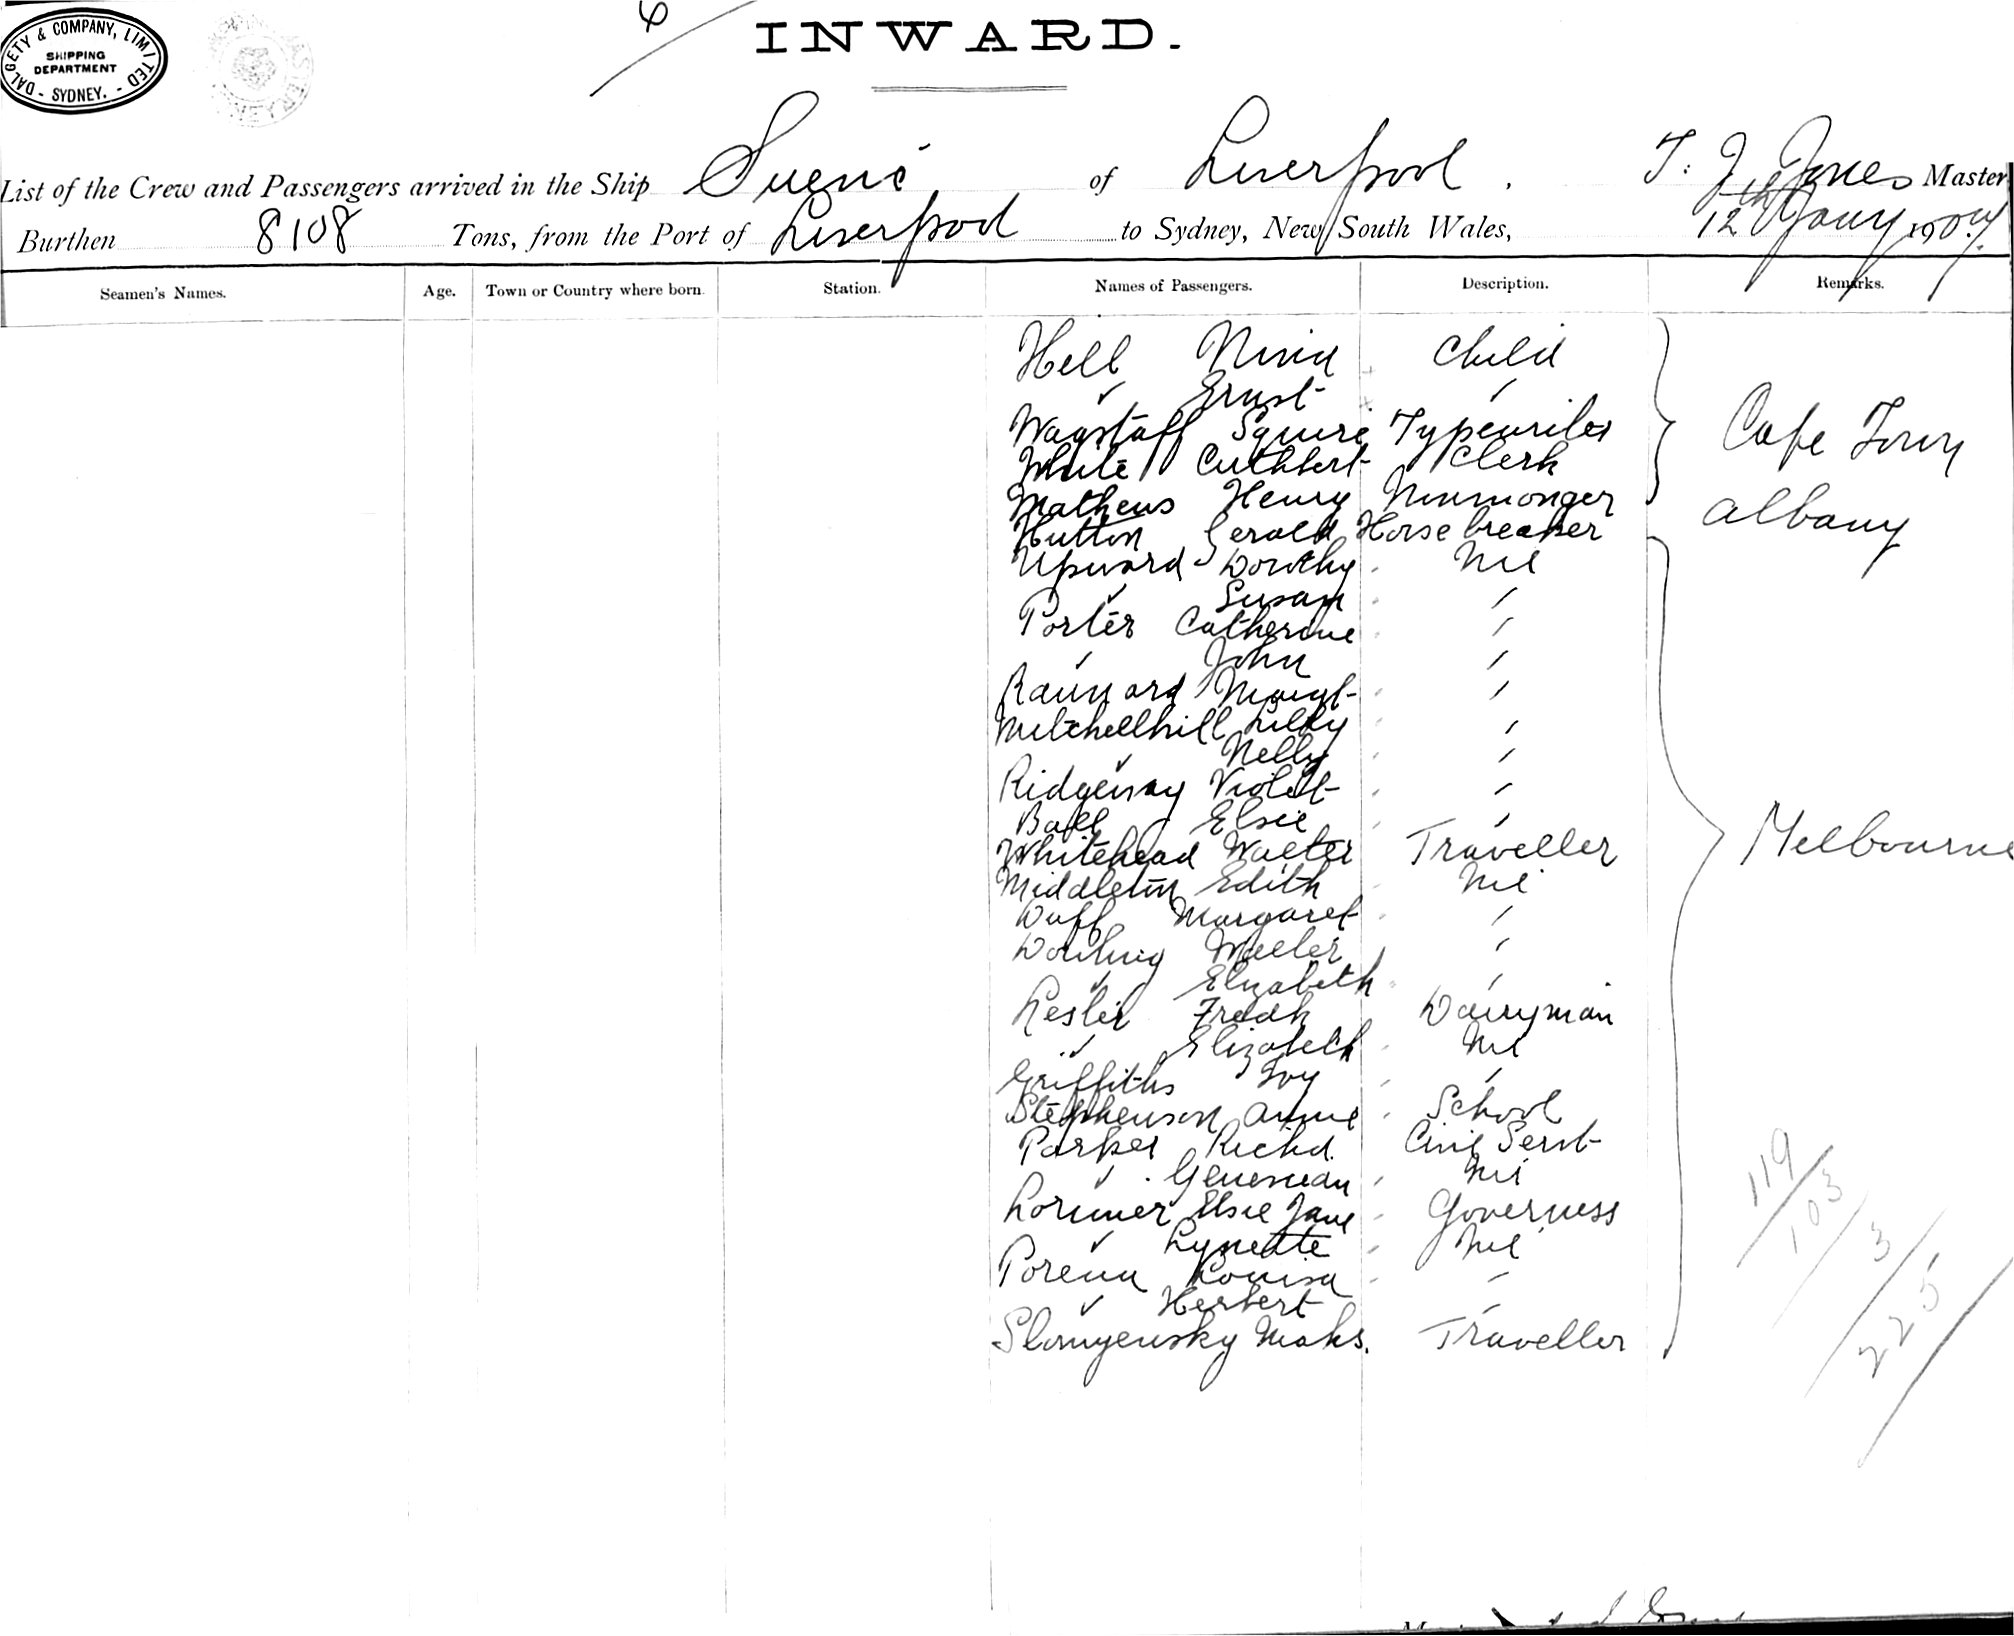 DALGETY & COMPANY, LIMITED
SHIPPING
DEPARTMENT
- SYDNEY. -
6
INWARD.
List of the Crew and Passengers arrived in the Ship Suevic of Liverpool. T: J. Jones Master
Burthen 8108 Tons, from the Port of Liverpool to Sydney, New South Wales, 12th Jany 1907
Seamen's Names. Age. Town or Country where born. Station. Names of Passengers. Description. Remarks.
Hell Nina Child
" Ernst "
Wagstaff Squire Typewriter Cape Town
White Cuthbert Clerk
Mathews Henry
Hutton Gerald Horse breaker Albany
Upward Dorothy Nil
" Susan "
Porter Catherine "
" John "
Raunard Margt "
Mitchellhill Lilly "
" Nelly "
Ridgeway Violet "
Ball Elsie "
Whitehead Walter Traveller Melbourne
Middleton Edith Nil
Duff Margaret "
Dowling "
" Elizabeth "
Leslie Fredk Dairyman
" Elizabeth Nil
Griffiths Ivy "
Stephenson Annie School
Parker Richd. Civil Servt
" Nil
Lorimer Elsie Jane Governess
" Lynette Nil
Louisa "
" Herbert "
Maks. Traveller
119
103
3
225